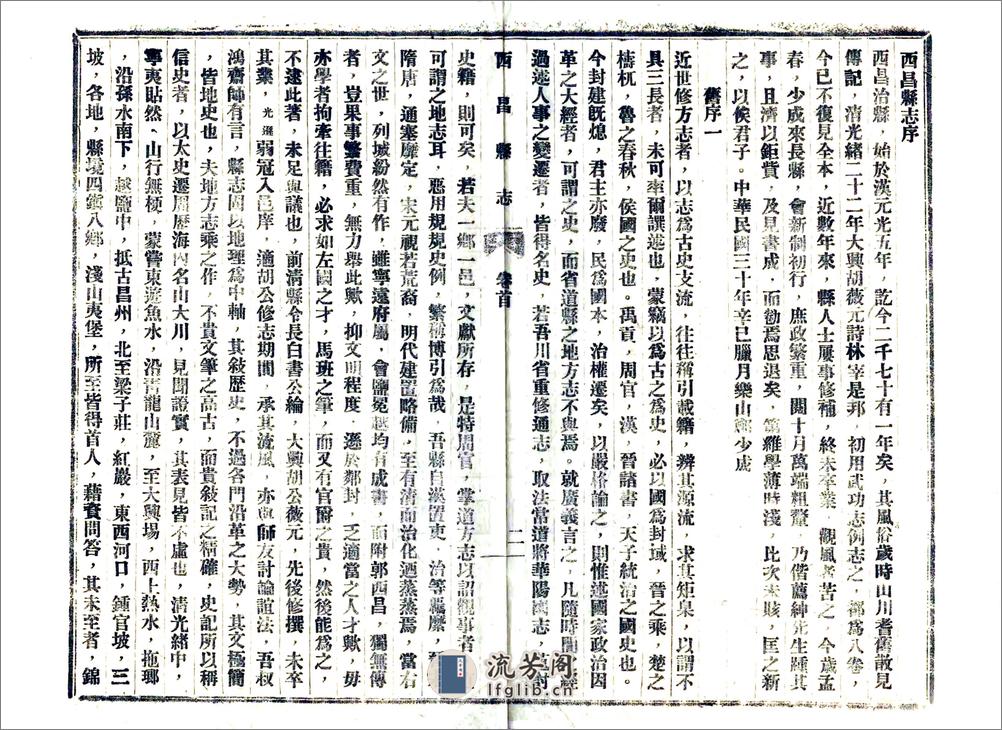 西昌縣志序
西昌治縣，始於漢元光五年，訖今二千七十有一年矣，其風俗歲時山川耆舊散見
傳記，清光緒二十二年大興胡薇元詩林宰是邦，初用武功志例志之，都爲八卷，
今已不復見全本，近數年來，縣人士屢事修補，終未卒業，觀風者苦之，今歲孟
春，少成來長縣，會新制初行，庶政繁重，閱十月萬端粗釐，乃偕薦紳先生踵其
事，且濟以鉅貲，及見書成，而勸焉思退矣，第雜學薄時淺，比次未賅，匡之新
之，以俟君子。中華民國三十年辛巳臘月樂山 少成
舊序一
近世修方志者，以志爲古史支流，往往稱引載籍，辨其源流，求其矩臬，以謂不
具三長者，未可率爾譔述也，蒙竊以爲古之爲史，必以國爲封域，晉之乘，楚之
檮杌，魯之春秋，侯國之史也。禹貢，周官，漢，晉諸書，天子統治之國史也。
今封建旣熄，君主亦廢，民爲國本，治權遷矣，以嚴格論之，則惟述國家政治因
革之大經者，可謂之史，而省道縣之地方志不與焉。就廣義言之，凡隨時間 經
過述人事之變遷者，皆得名史，若吾川省重修通志，取法常道將華陽國志，
西昌縣志 卷首 二
史籍，則可矣，若夫一鄉一邑，文獻所存，是特周官，掌道方志以詔觀事者
可謂之地志耳，惡用規規史例，繁稱博引爲哉，吾縣自漢置吏，治等羈縻，
隋唐，通塞靡定，宋元視若荒裔，明代建置略備，至有清而治化遒蒸蒸焉，當右
文之世，列城紛然有作，雖寧遠府屬，會鹽冕越均有成書，而附郭西昌，獨無傳
者，豈果事繁費重，無力舉此歟，抑文明程度，遜於鄰封，乏適當之人才歟，毋
亦學者拘牽往籍，必求如左國之才，馬班之筆，而又有官附之貴，然後能爲之，
不逮此著，未足與議也，前清縣令長白書公綸，大興胡公薇元，先後修撰，未卒
其業，光遜弱冠入邑庠，適胡公修志期間，承其流風，亦與師友討論誼法，吾叔
鴻齋師有言，縣志固以地理爲中軸，其敍歷史，不過各門沿革之大勢，其文極簡
，皆地史也，夫地方志乘之作，不貴文筆之高古，而貴敍記之精確，史記所以稱
信史者，以太史遷周歷海內名山大川，見聞證實，其表見皆不虛也，清光緒中，
寧夷貼然，山行無梗，蒙嘗東遊魚水，沿青龍山麓，至大興場，西上熱水，拖瑯
，沿孫水南下，越鹽中，抵古昌州，北至梁子莊，紅巖，東西河口，鍾官坡，三
坡，各地，縣境四鎮八鄉，淺山夷堡，所至皆得首人，藉資問答，其未至者，錦
流芳阁
lfglib.cn